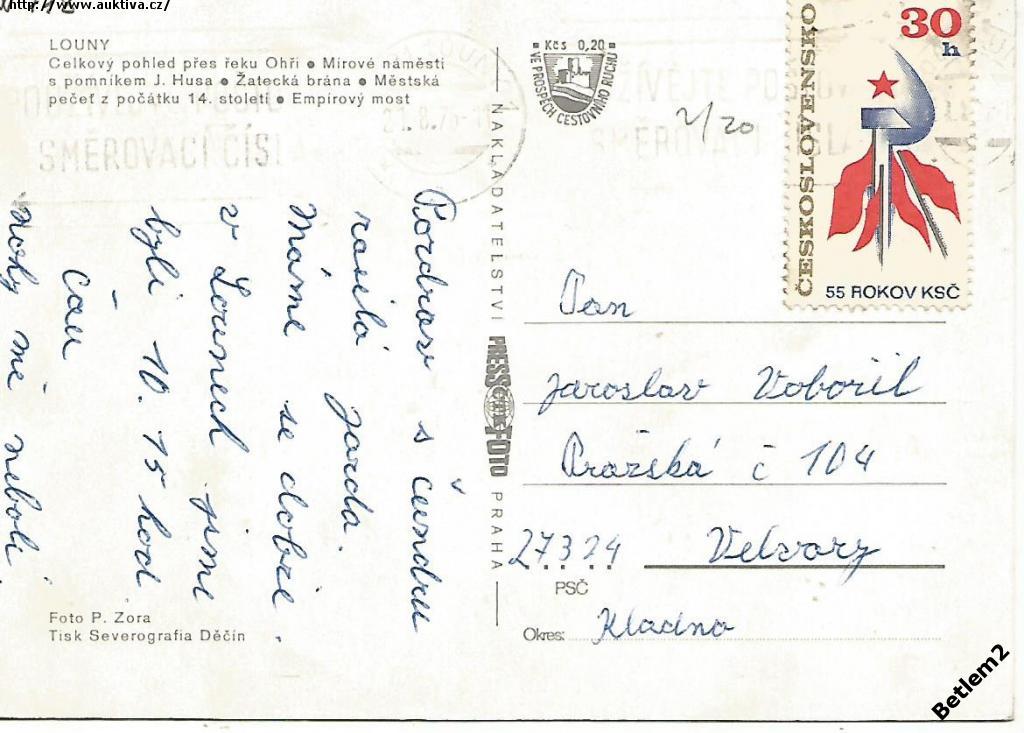 http://www.auktiva.cz/
LOUNY
Celkový pohled přes řeku Ohři ● Mírové náměstí
s pomníkem J. Husa ● Žatecká brána ● Městská
pečeť z počátku 14. století ● Empírový most
SMĚROVACÍ ČÍSLA
Kčs 0,20
VE PROSPĚCH CESTOVNÍHO RUCHU
2/20
ČESKOSLOVENSKO
30
h
55 ROKOV KSČ
NAKLADATELSTVÍ
PRESSFOTO
PRAHA
Pozdrav s čundru
posílá Jarda.
Máme se dobře.
v Lounech jsme
byli 10.15 hod
Čau
nohy mě nebolí.
Pan
Jaroslav Vobořil
Pražská č 104
27324 Velvary
PSČ
Okres: Kladno
Foto P. Zora
Tisk Severografia Děčín
Betlem2